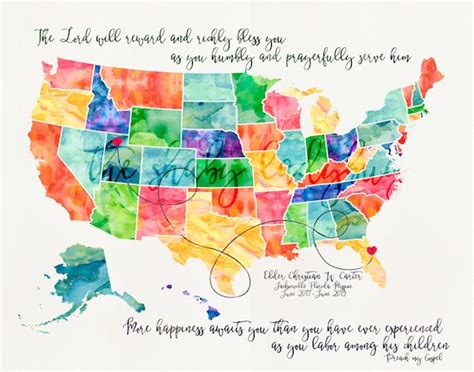 The Lord will reward and richly bless you
as you humbly and prayerfully serve him
the shabby
Elder Christian W. Carter
Jacksonville Florida Mission
June 2017 - June 2019
More happiness awaits you than you have ever experienced
as you labor among his children
Preach my Gospel